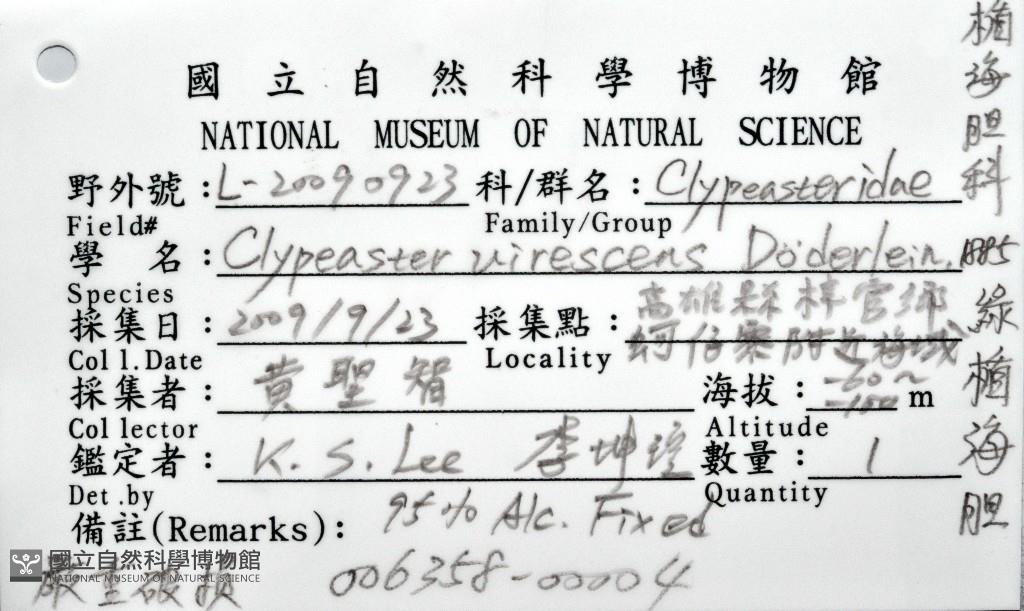 國立自然科學博物館
NATIONAL MUSEUM OF NATURAL SCIENCE
野外號：L-20090923 科/群名：Clypeasteridae
Field# Family/Group
學 名：Clypeaster virescens Döderlein, 1885
Species
採集日：2009/9/23 採集點：高雄縣梓官鄉
蚵仔寮附近海域
Coll.Date Locality
採集者：黃聖智 海拔：-50~-150 m
Collector Altitude
鑑定者：K. S. Lee 李坤瑄 數量：1
Det.by Quantity
備註(Remarks)：95% Alc. Fixed
006358-00004
嚴重破損
國立自然科學博物館
NATIONAL MUSEUM OF NATURAL SCIENCE
楯海胆科
綠楯海胆